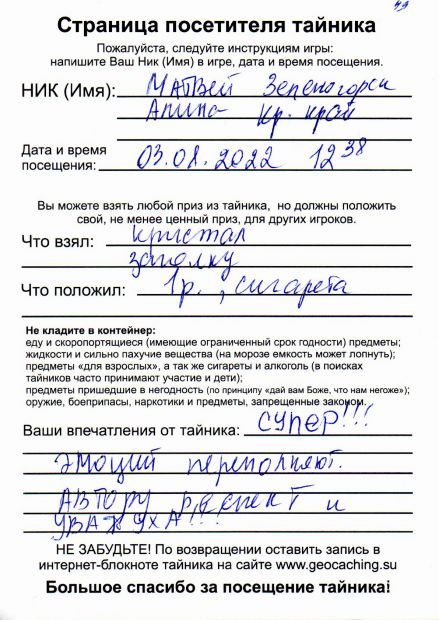 49
Страница посетителя тайника
Пожалуйста, следуйте инструкциям игры:
напишите Ваш Ник (Имя) в игре, дата и время посещения.
НИК (Имя): Матвей Зеленогорск
Алина Кр. край
Дата и время
посещения: 03.08.2022 12 38
Вы можете взять любой приз из тайника, но должны положить
свой, не менее ценный приз, для других игроков.
Что взял: кристал
заколку
Что положил: 1р., сигарета
Не кладите в контейнер:
еду и скоропортящиеся (имеющие ограниченный срок годности) предметы;
жидкости и сильно пахучие вещества (на морозе емкость может лопнуть);
предметы «для взрослых», а так же сигареты и алкоголь (в поисках
тайников часто принимают участие и дети);
предметы пришедшие в негодность (по принципу «дай вам Боже, что нам негоже»);
оружие, боеприпасы, наркотики и предметы, запрещенные законом.
Ваши впечатления от тайника: СУПЕР!!!
Эмоций переполняют.
АВТОРУ респект и
УВАЖУХА!!!
НЕ ЗАБУДЬТЕ! По возвращении оставить запись в
интернет-блокноте тайника на сайте www.geocaching.su
Большое спасибо за посещение тайника!